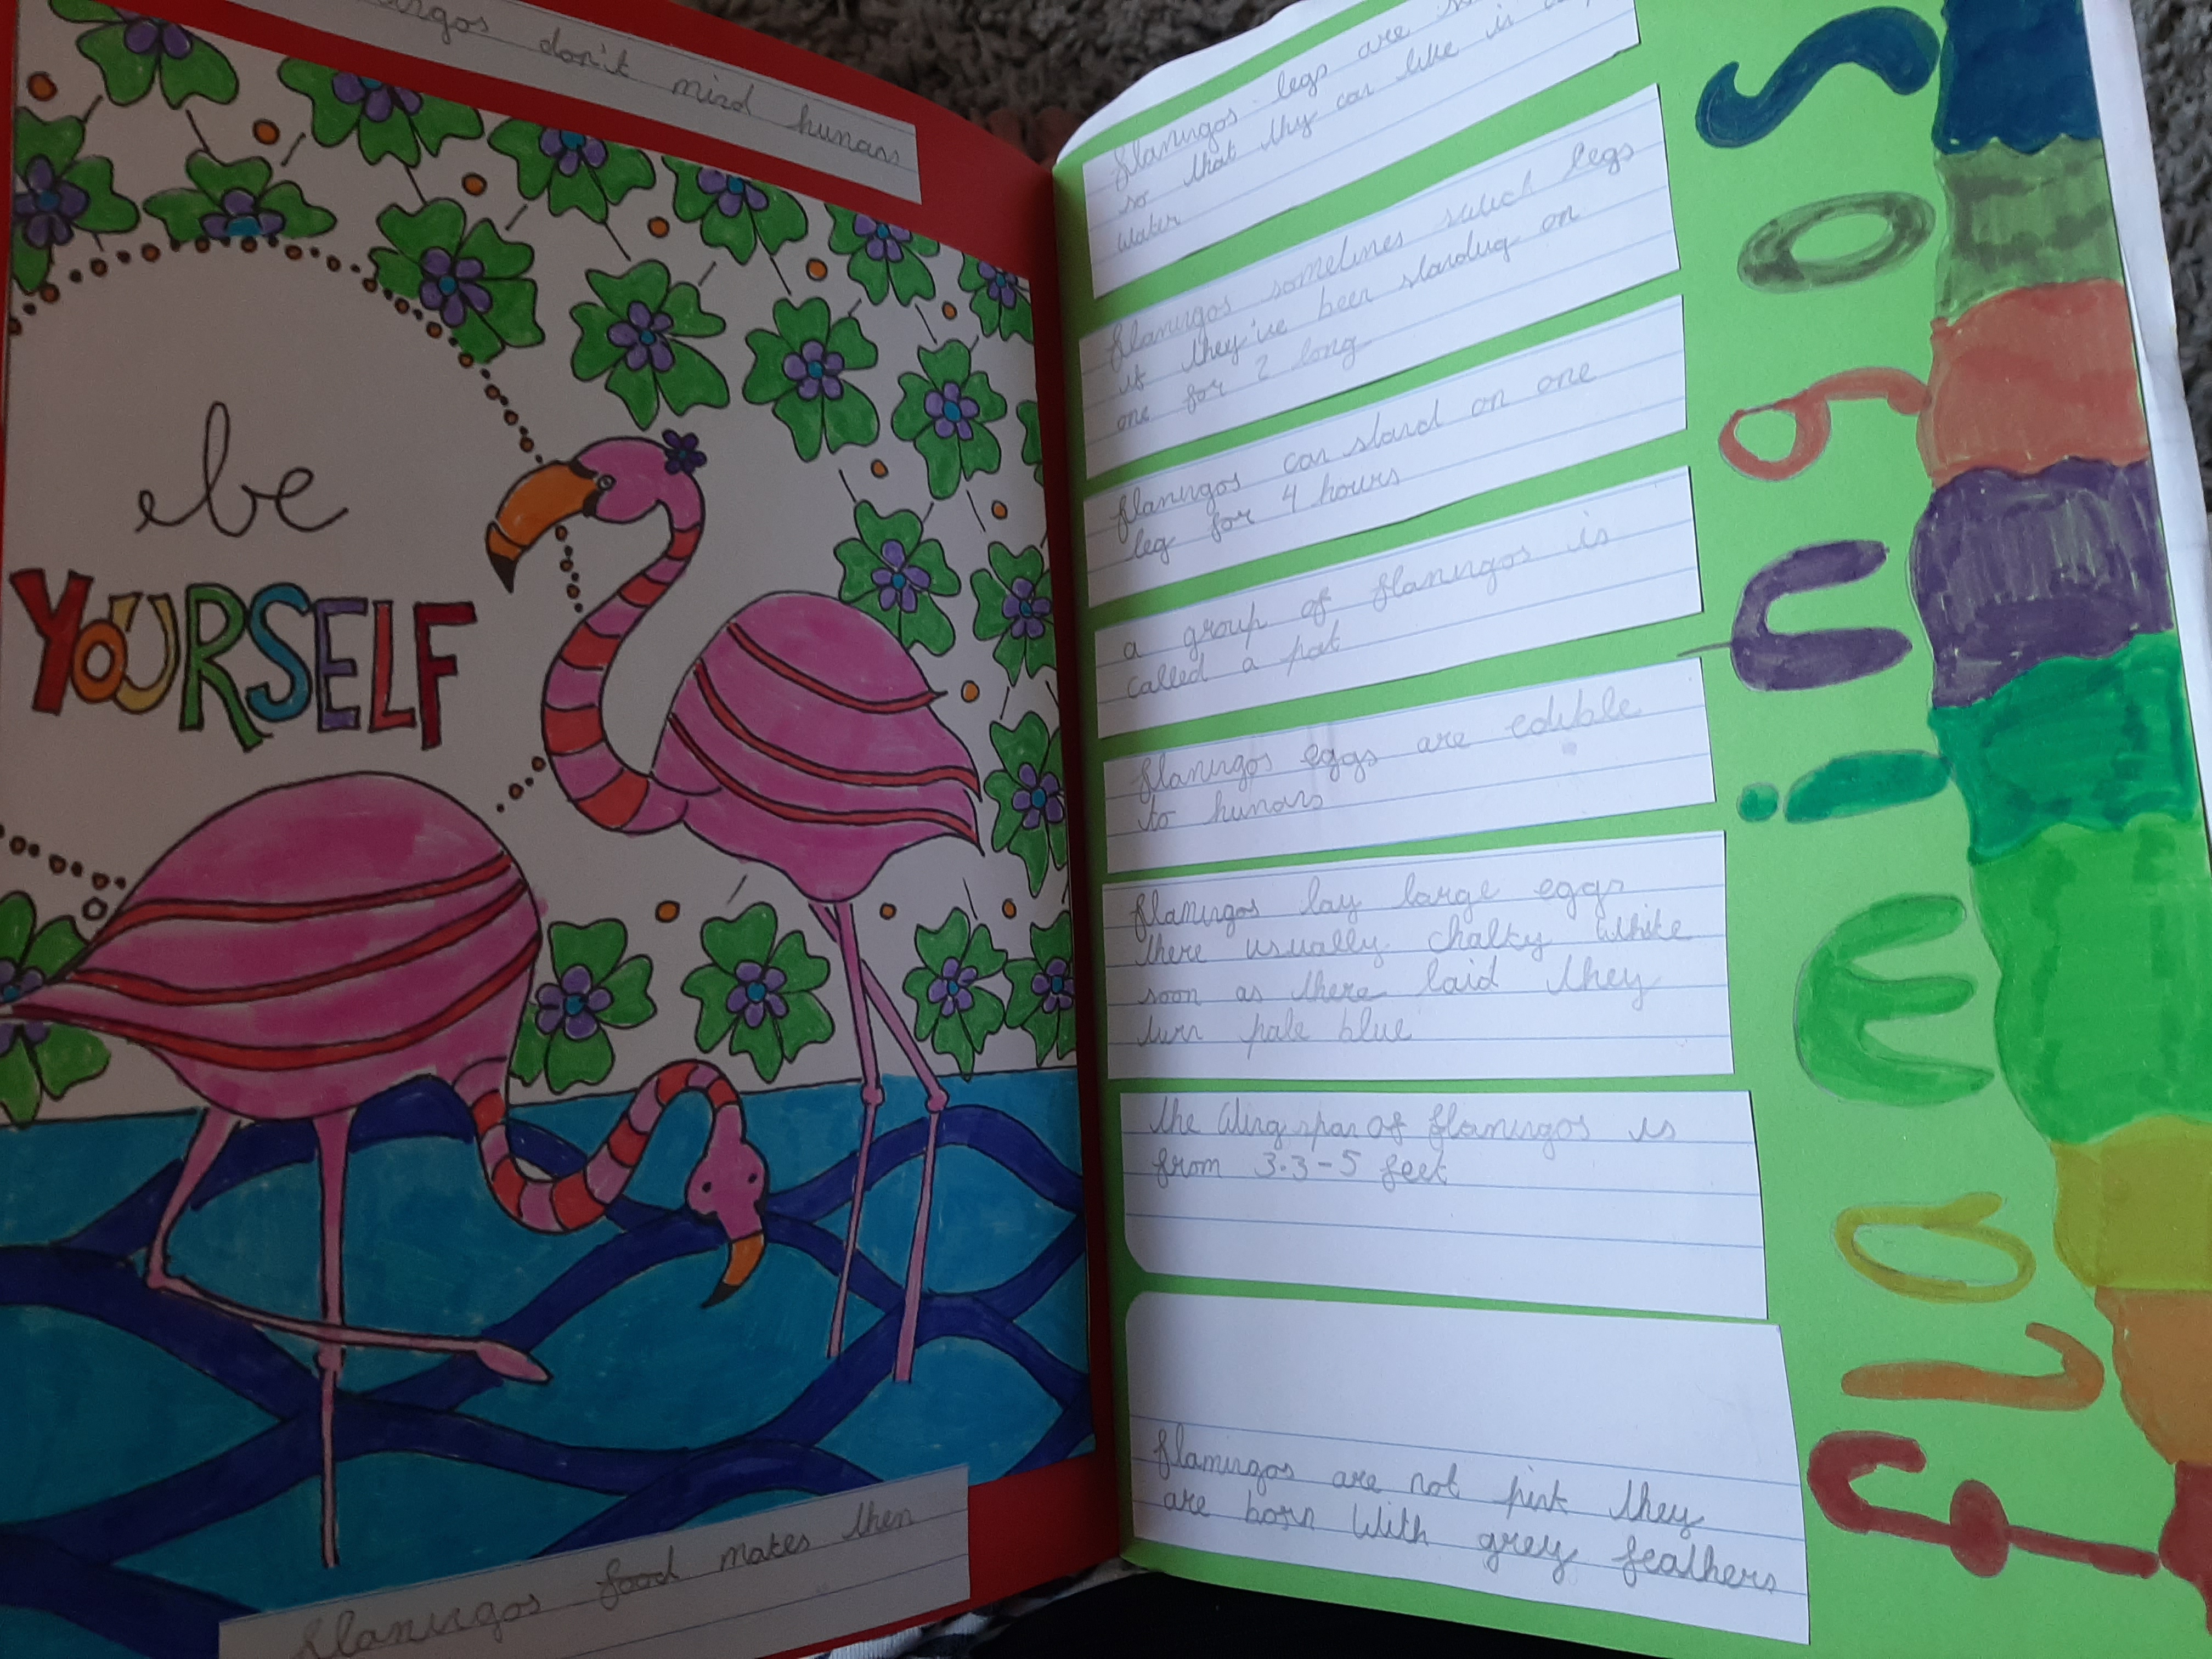 don't mind humans
be
YOURSELF
flamingos food makes them
flamingos legs are
so that thy can like is
water
flamingos sometimes swich legs
if they've been standing on
one for 2 long
flamingos can stand on one
leg for 4 hours
a group of flamingos is
called a pat
flamingos eggs are edible
to humans
flamingos lay large eggs
there usually chalky white
soon as there laid they
turn pale blue
the Wing span of flamingos is
from 3.3-5 feet
flamingos are not pink they
are born With grey feathers
flamingos